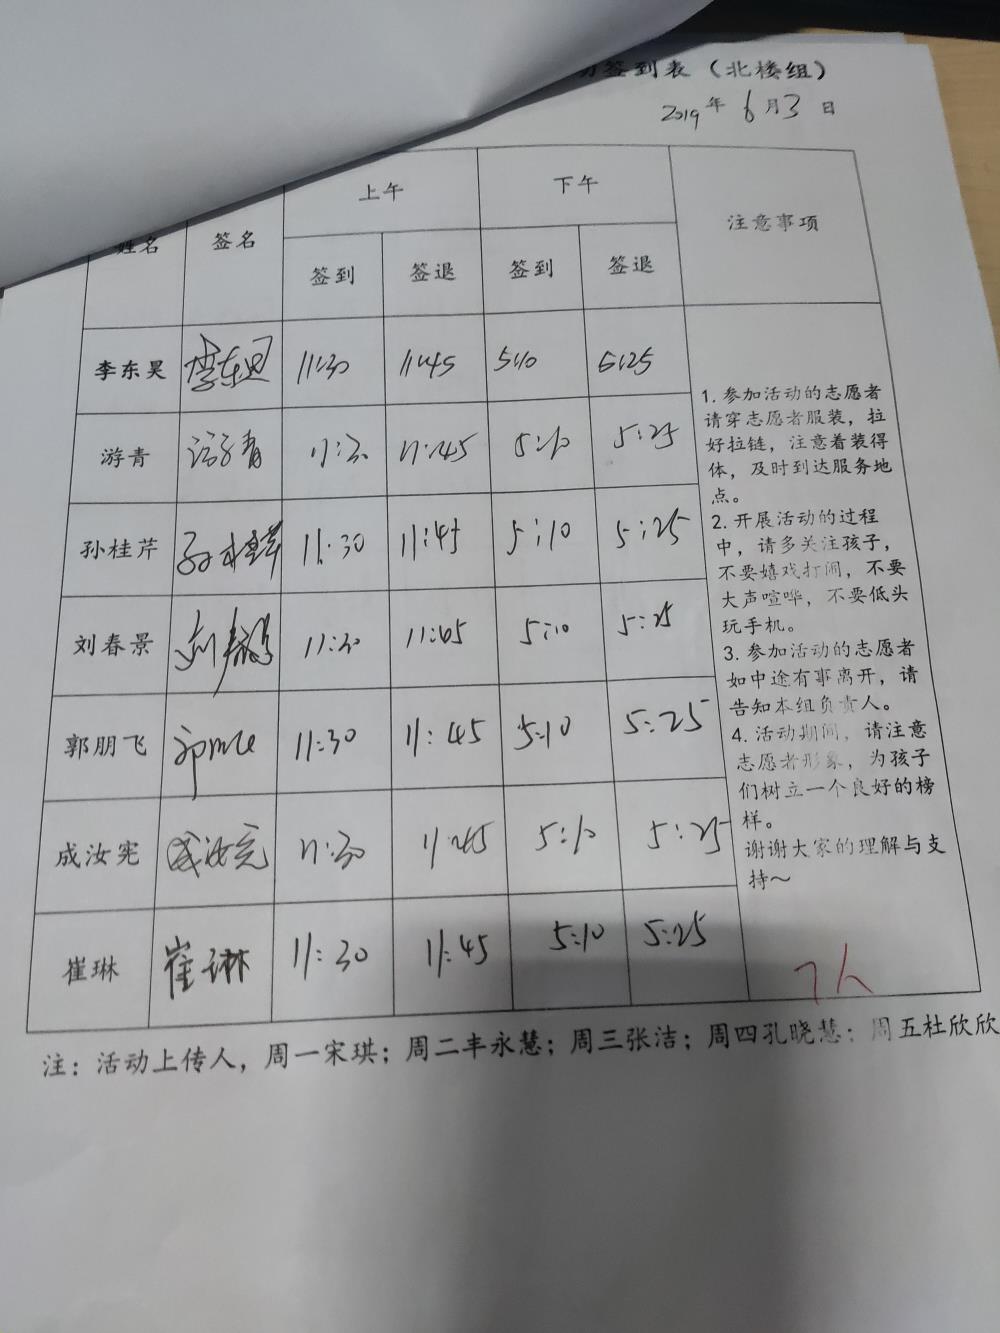 签到表（北楼组）
2019年6月3日
姓名 签名 上午 下午 注意事项
签到 签退 签到 签退
李东昊 李东昊 11:30 11:45 5:10 5:25
游青 游青 11:30 11:45 5:10 5:25
孙桂芹 孙桂芹 11:30 11:45 5:10 5:25
刘春景 刘春景 11:30 11:45 5:10 5:25
郭朋飞 11:30 11:45 5:10 5:25
成汝宪 成汝宪 11:30 11:45 5:10 5:25
崔琳 崔琳 11:30 11:45 5:10 5:25
1. 参加活动的志愿者
请穿志愿者服装，拉
好拉链，注意着装得
体，及时到达服务地
点。
2. 开展活动的过程
中，请多关注孩子，
不要嬉戏打闹，不要
大声喧哗，不要低头
玩手机。
3. 参加活动的志愿者
如中途有事离开，请
告知本组负责人。
4. 活动期间，请注意
志愿者形象，为孩子
们树立一个良好的榜
样。
谢谢大家的理解与支
持～
7人
注：活动上传人，周一宋琪；周二丰永慧；周三张洁；周四孔晓慧；周五杜欣欣